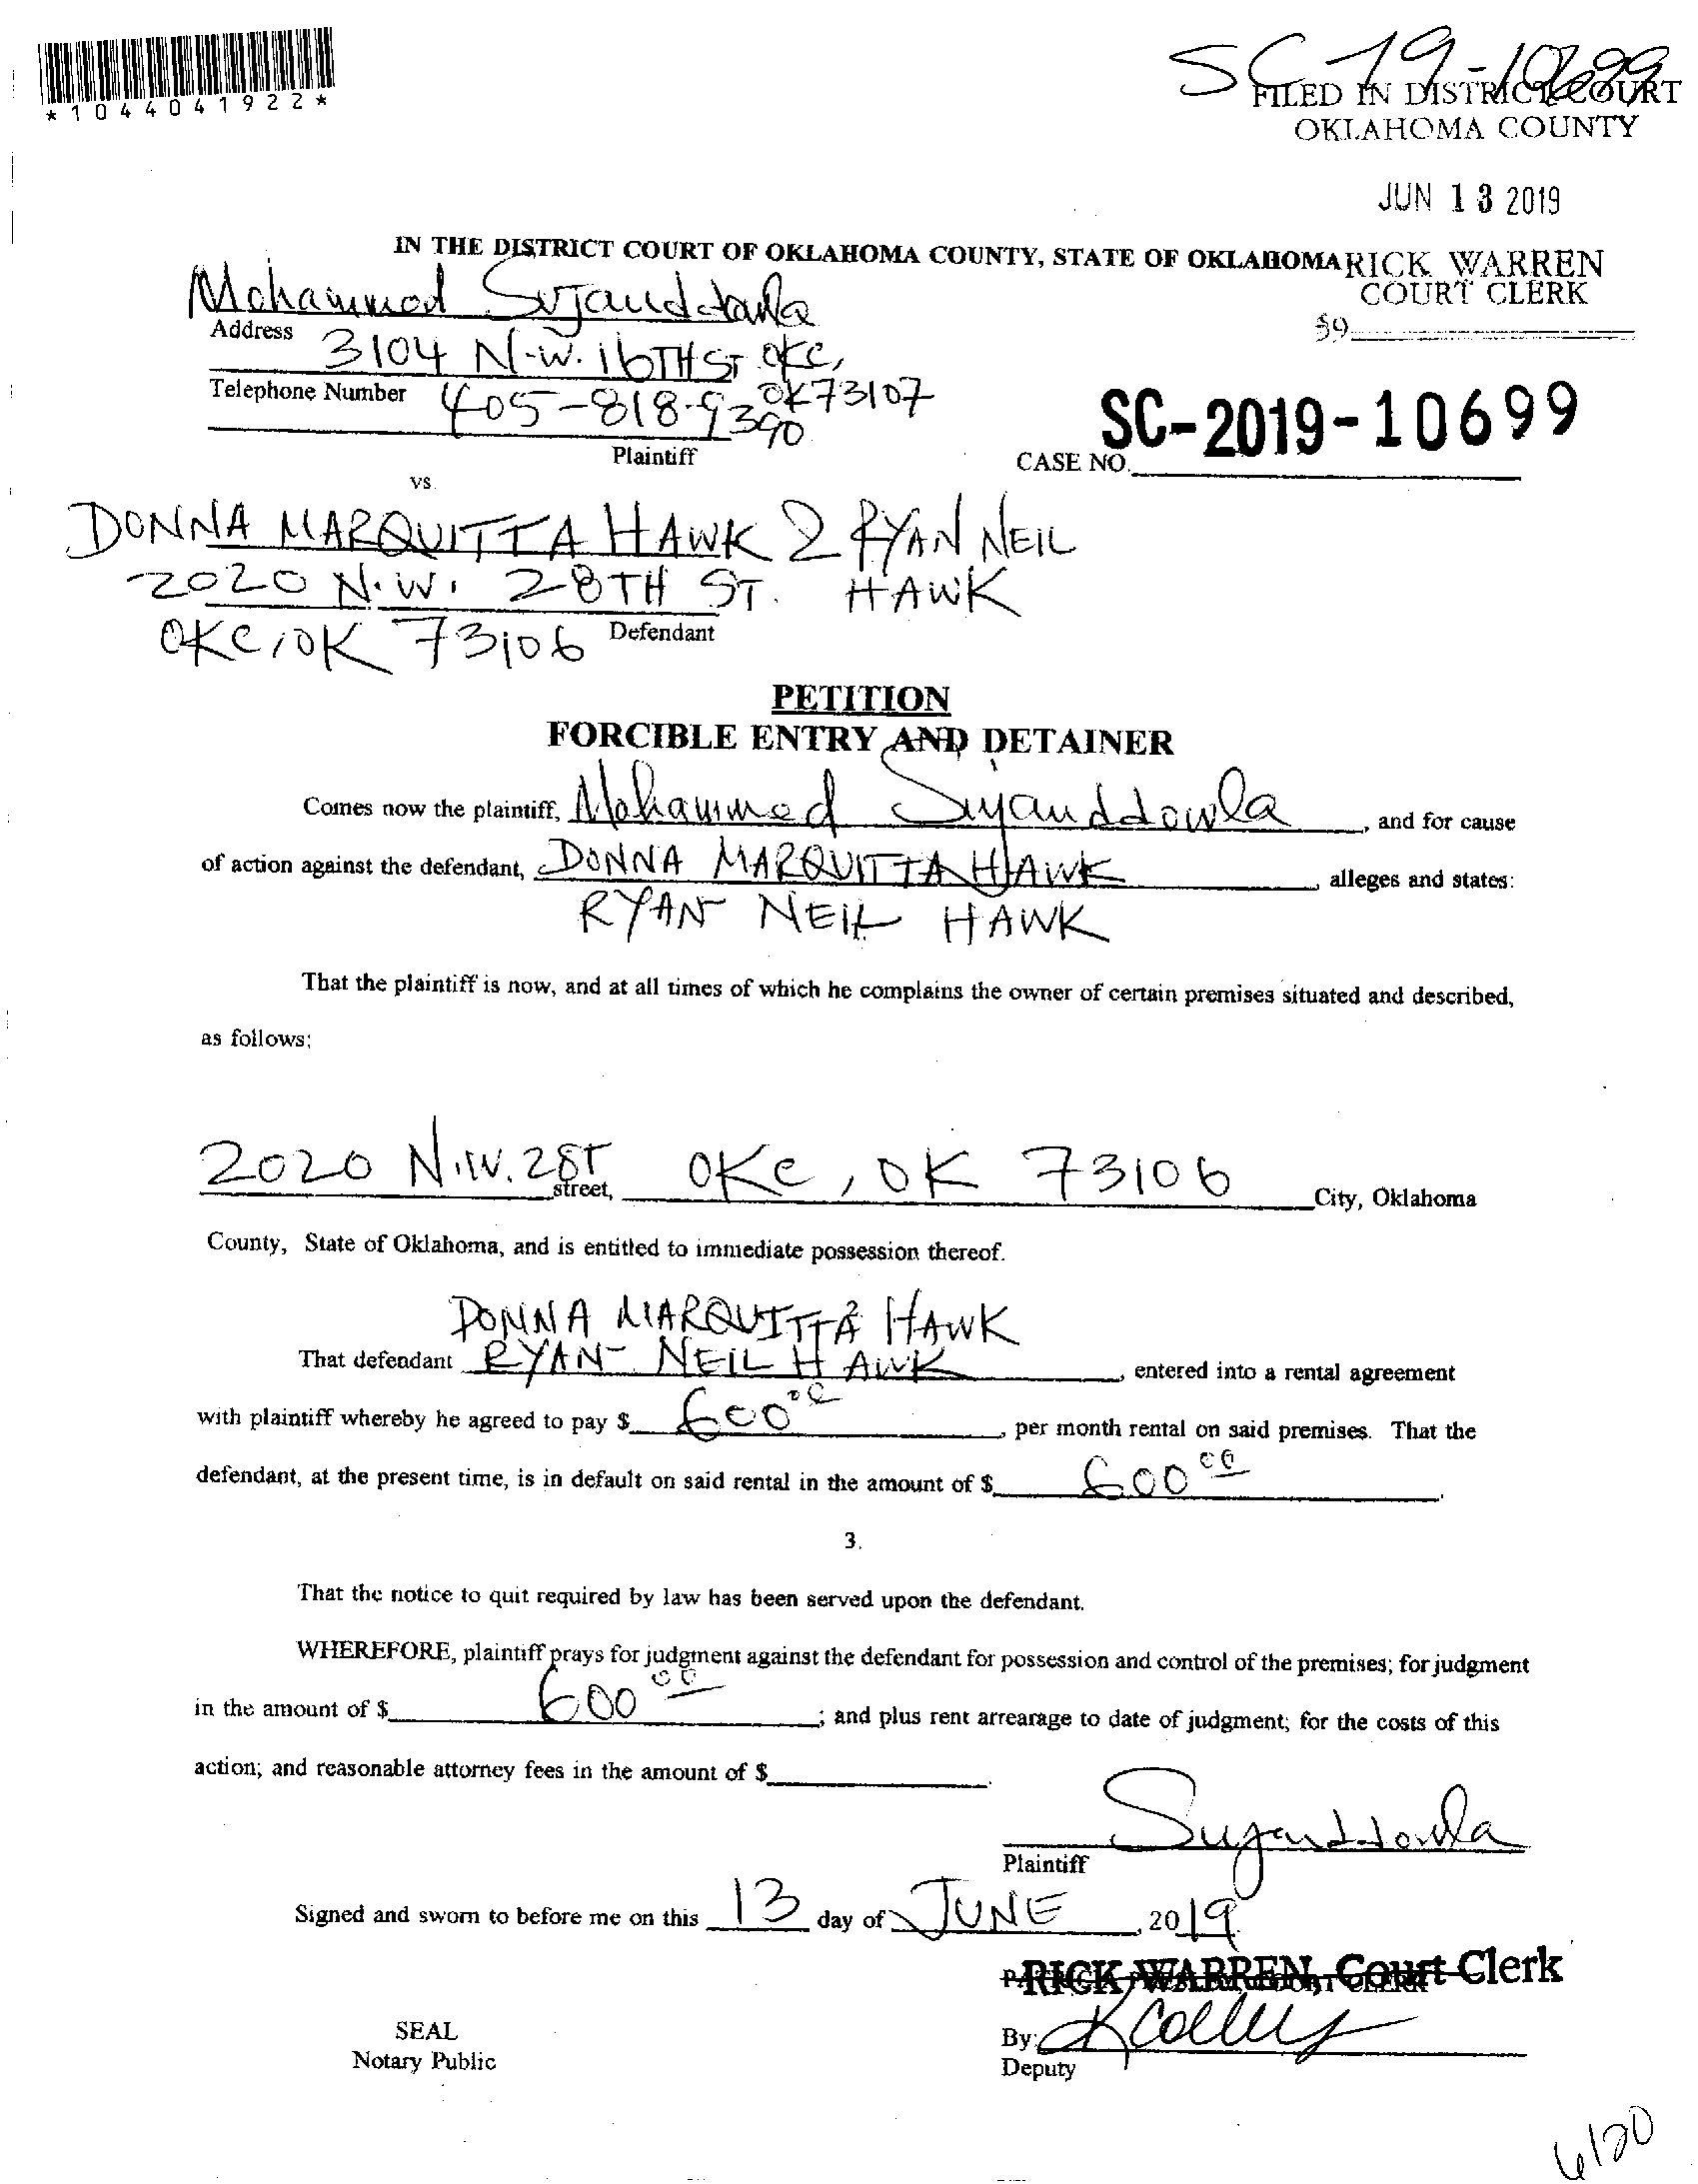 *1044041922*
SC-19-10699
FILED IN DISTRICT COURT
OKLAHOMA COUNTY
JUN 13 2019
IN THE DISTRICT COURT OF OKLAHOMA COUNTY, STATE OF OKLAHOMA
RICK WARREN
COURT CLERK
59
Mohammod Sujauddowla
Address 3104 N.W. 16TH ST OKC,
OK 73107
Telephone Number 405-818-9390
Plaintiff
SC-2019-10699
CASE NO.
vs.
DONNA MARQUITTA HAWK & RYAN NEIL
2020 N.W. 28TH ST. HAWK
OKC, OK 73106 Defendant
PETITION
FORCIBLE ENTRY AND DETAINER
Comes now the plaintiff, Mohammod Sujauddowla, and for cause
of action against the defendant, DONNA MARQUITTA HAWK alleges and states:
RYAN NEIL HAWK
That the plaintiff is now, and at all times of which he complains the owner of certain premises situated and described,
as follows:
2020 N.W. 28T street, OKC, OK 73106 City, Oklahoma
County, State of Oklahoma, and is entitled to immediate possession thereof.
DONNA MARQUITTA HAWK
2
That defendant RYAN NEIL HAWK, entered into a rental agreement
with plaintiff whereby he agreed to pay $ 600 00, per month rental on said premises. That the
defendant, at the present time, is in default on said rental in the amount of $ 600 00.
3.
That the notice to quit required by law has been served upon the defendant.
WHEREFORE, plaintiff prays for judgment against the defendant for possession and control of the premises; for judgment
in the amount of $ 600 00; and plus rent arrearage to date of judgment; for the costs of this
action; and reasonable attorney fees in the amount of $
Sujauddowla
Plaintiff
Signed and sworn to before me on this 13 day of JUNE, 2019
RICK WARREN, Court Clerk
SEAL
Notary Public
By:
Deputy
6/20